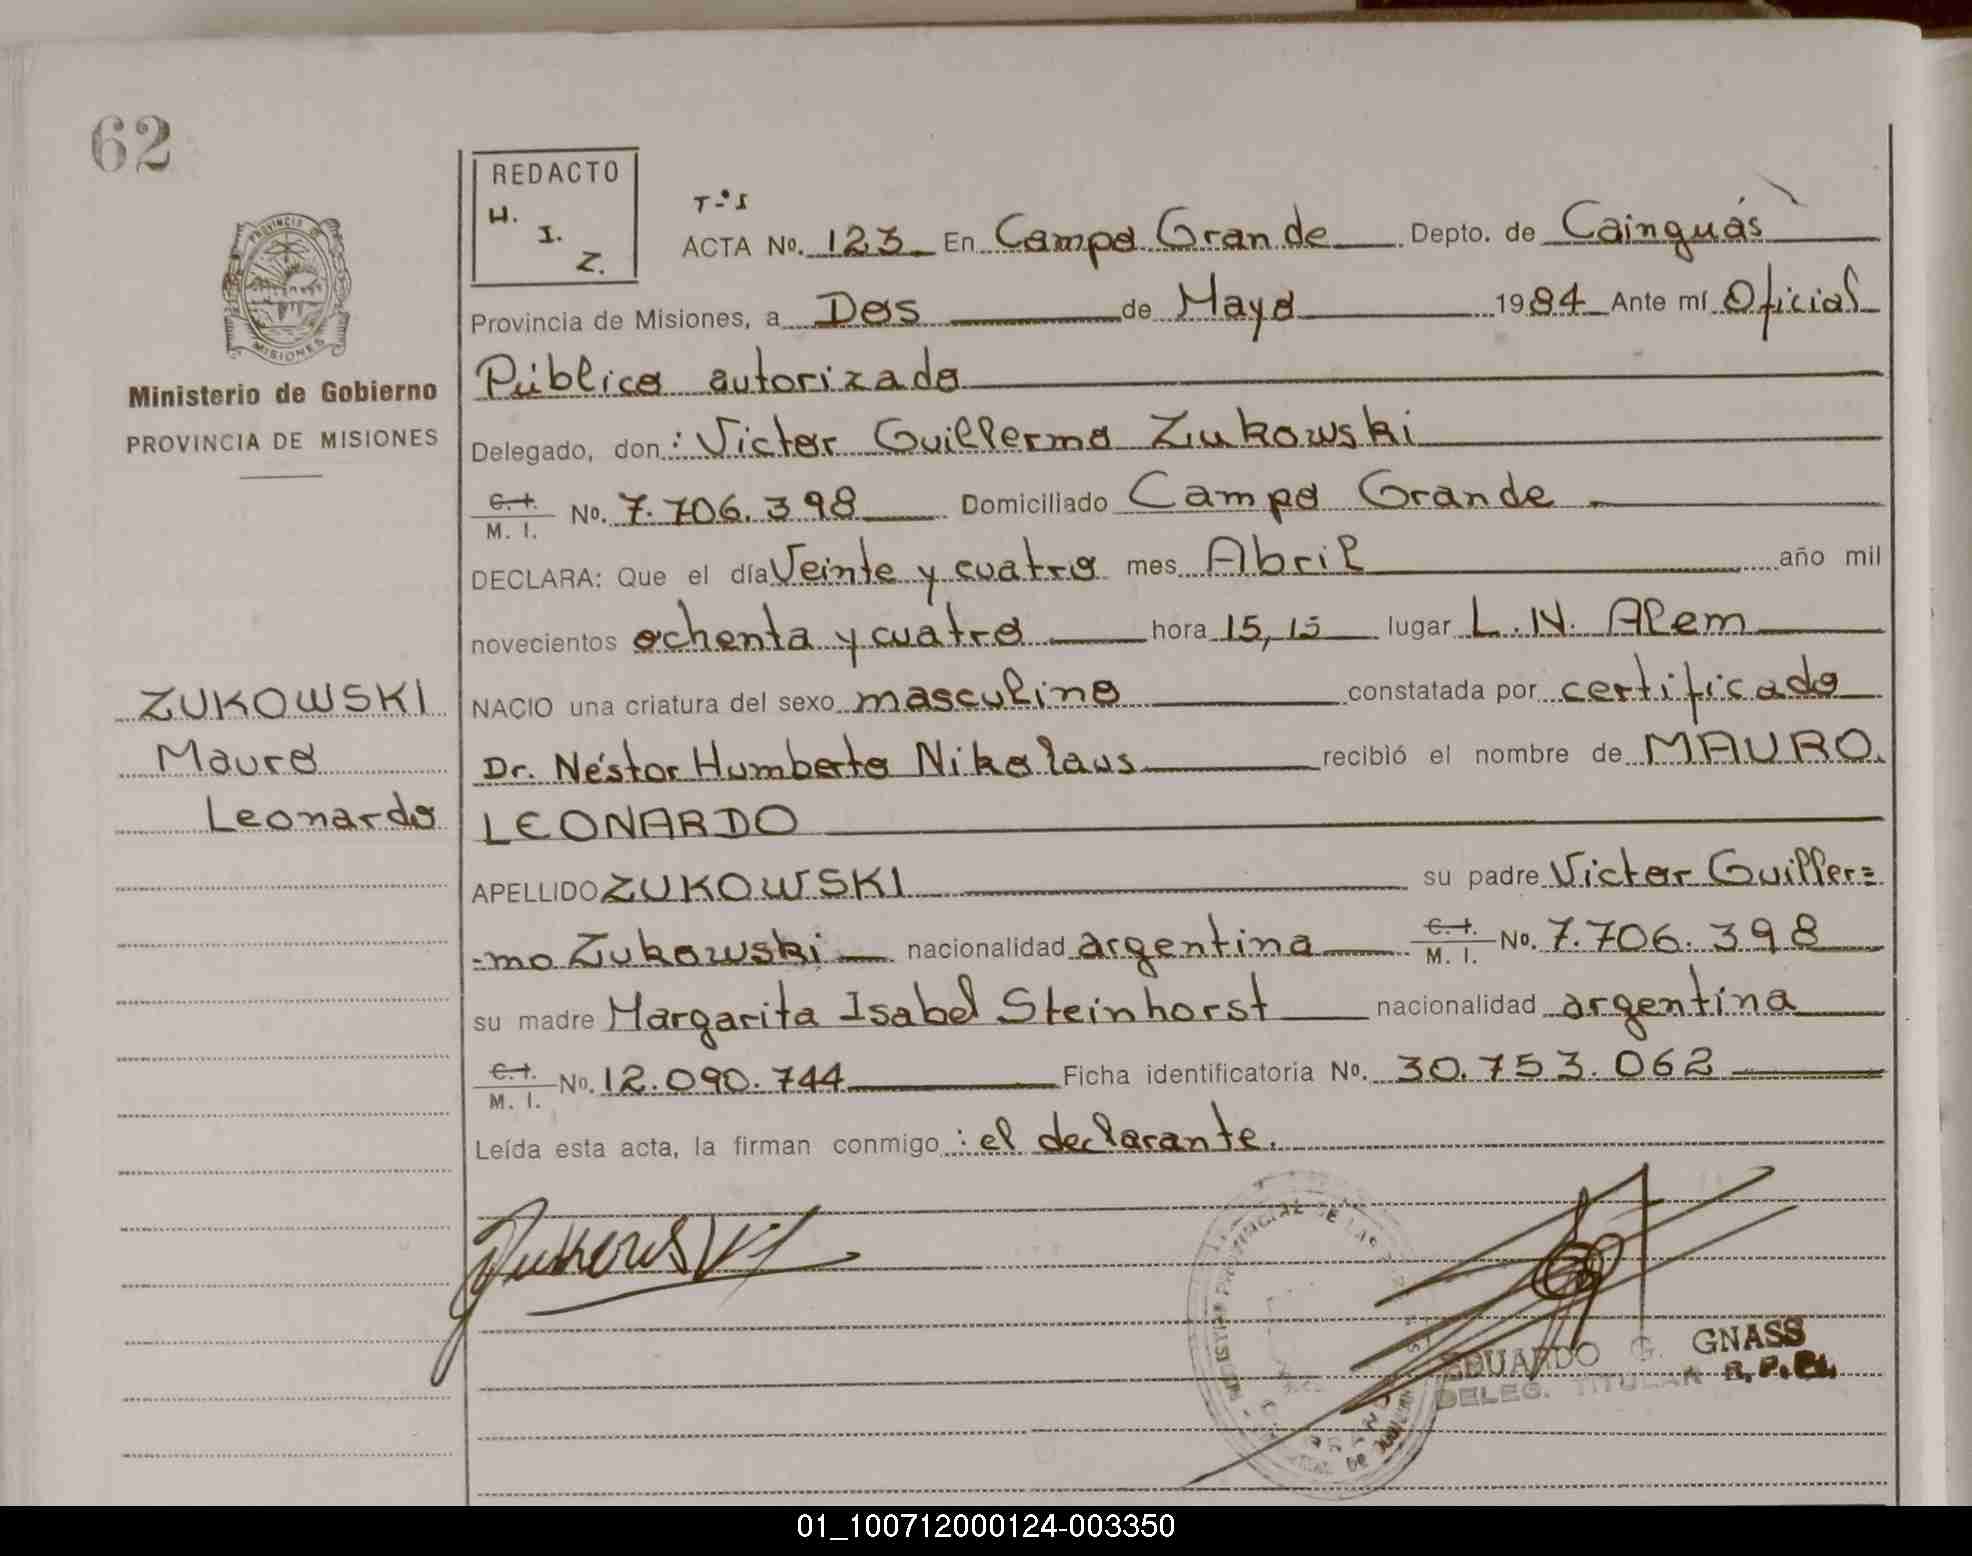 62
REDACTO
H.
I.
Z.
T-º1
ACTA No. 123 En Campo Grande Depto. de Cainguás
Provincia de Misiones, a Dos de Mayo 1984 Ante mí Oficial
Público autorizado
Delegado, don: Victor Guillermo Zukowski
C. I. / M. I. No. 7.706.398 Domiciliado Campo Grande
DECLARA: Que el día Veinte y cuatro mes Abril año mil
novecientos ochenta y cuatro hora 15,15 lugar L. N. Alem
NACIO una criatura del sexo masculino constatada por certificado
Dr. Néstor Humberto Nikolaus recibió el nombre de MAURO
LEONARDO
APELLIDO ZUKOWSKI su padre Victor Guiller=
-mo Zukowski nacionalidad argentina C. I. / M. I. No. 7.706.398
su madre Margarita Isabel Steinhorst nacionalidad argentina
C. I. / M. I. No. 12.090.744 Ficha identificatoria No. 30.753.062
Leída esta acta, la firman conmigo: el declarante.
PROVINCIA DE
MISIONES
Ministerio de Gobierno
PROVINCIA DE MISIONES
ZUKOWSKI
Mauro
Leonardo
EDUARDO G. GNASS
DELEG. TITULAR R. P.
01_100712000124-003350